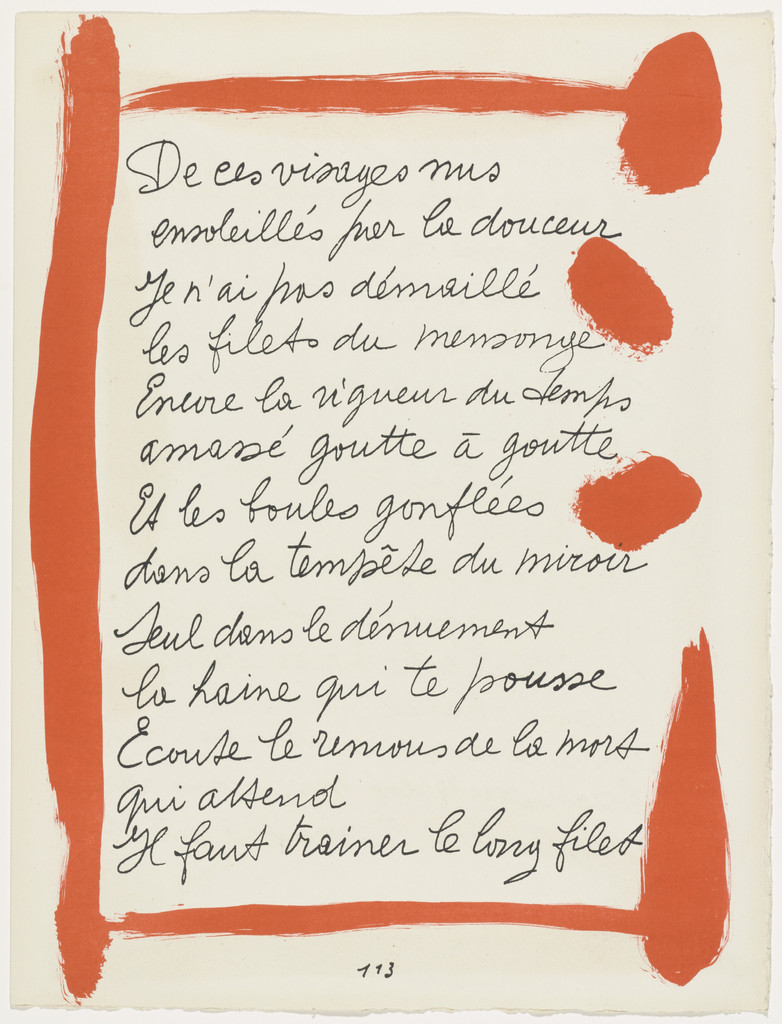 De ces visages nus
ensoleillés par la douceur
Je n'ai pas démaillé
les filets du mensonge
Encore la vigueur du temps
amassé goutte à goutte
Et les boules gonflées
dans la tempête du miroir
Seul dans le dénuement
la haine qui te pousse
Ecoute le remous de la mort
qui attend
Il faut trainer le long filet
113